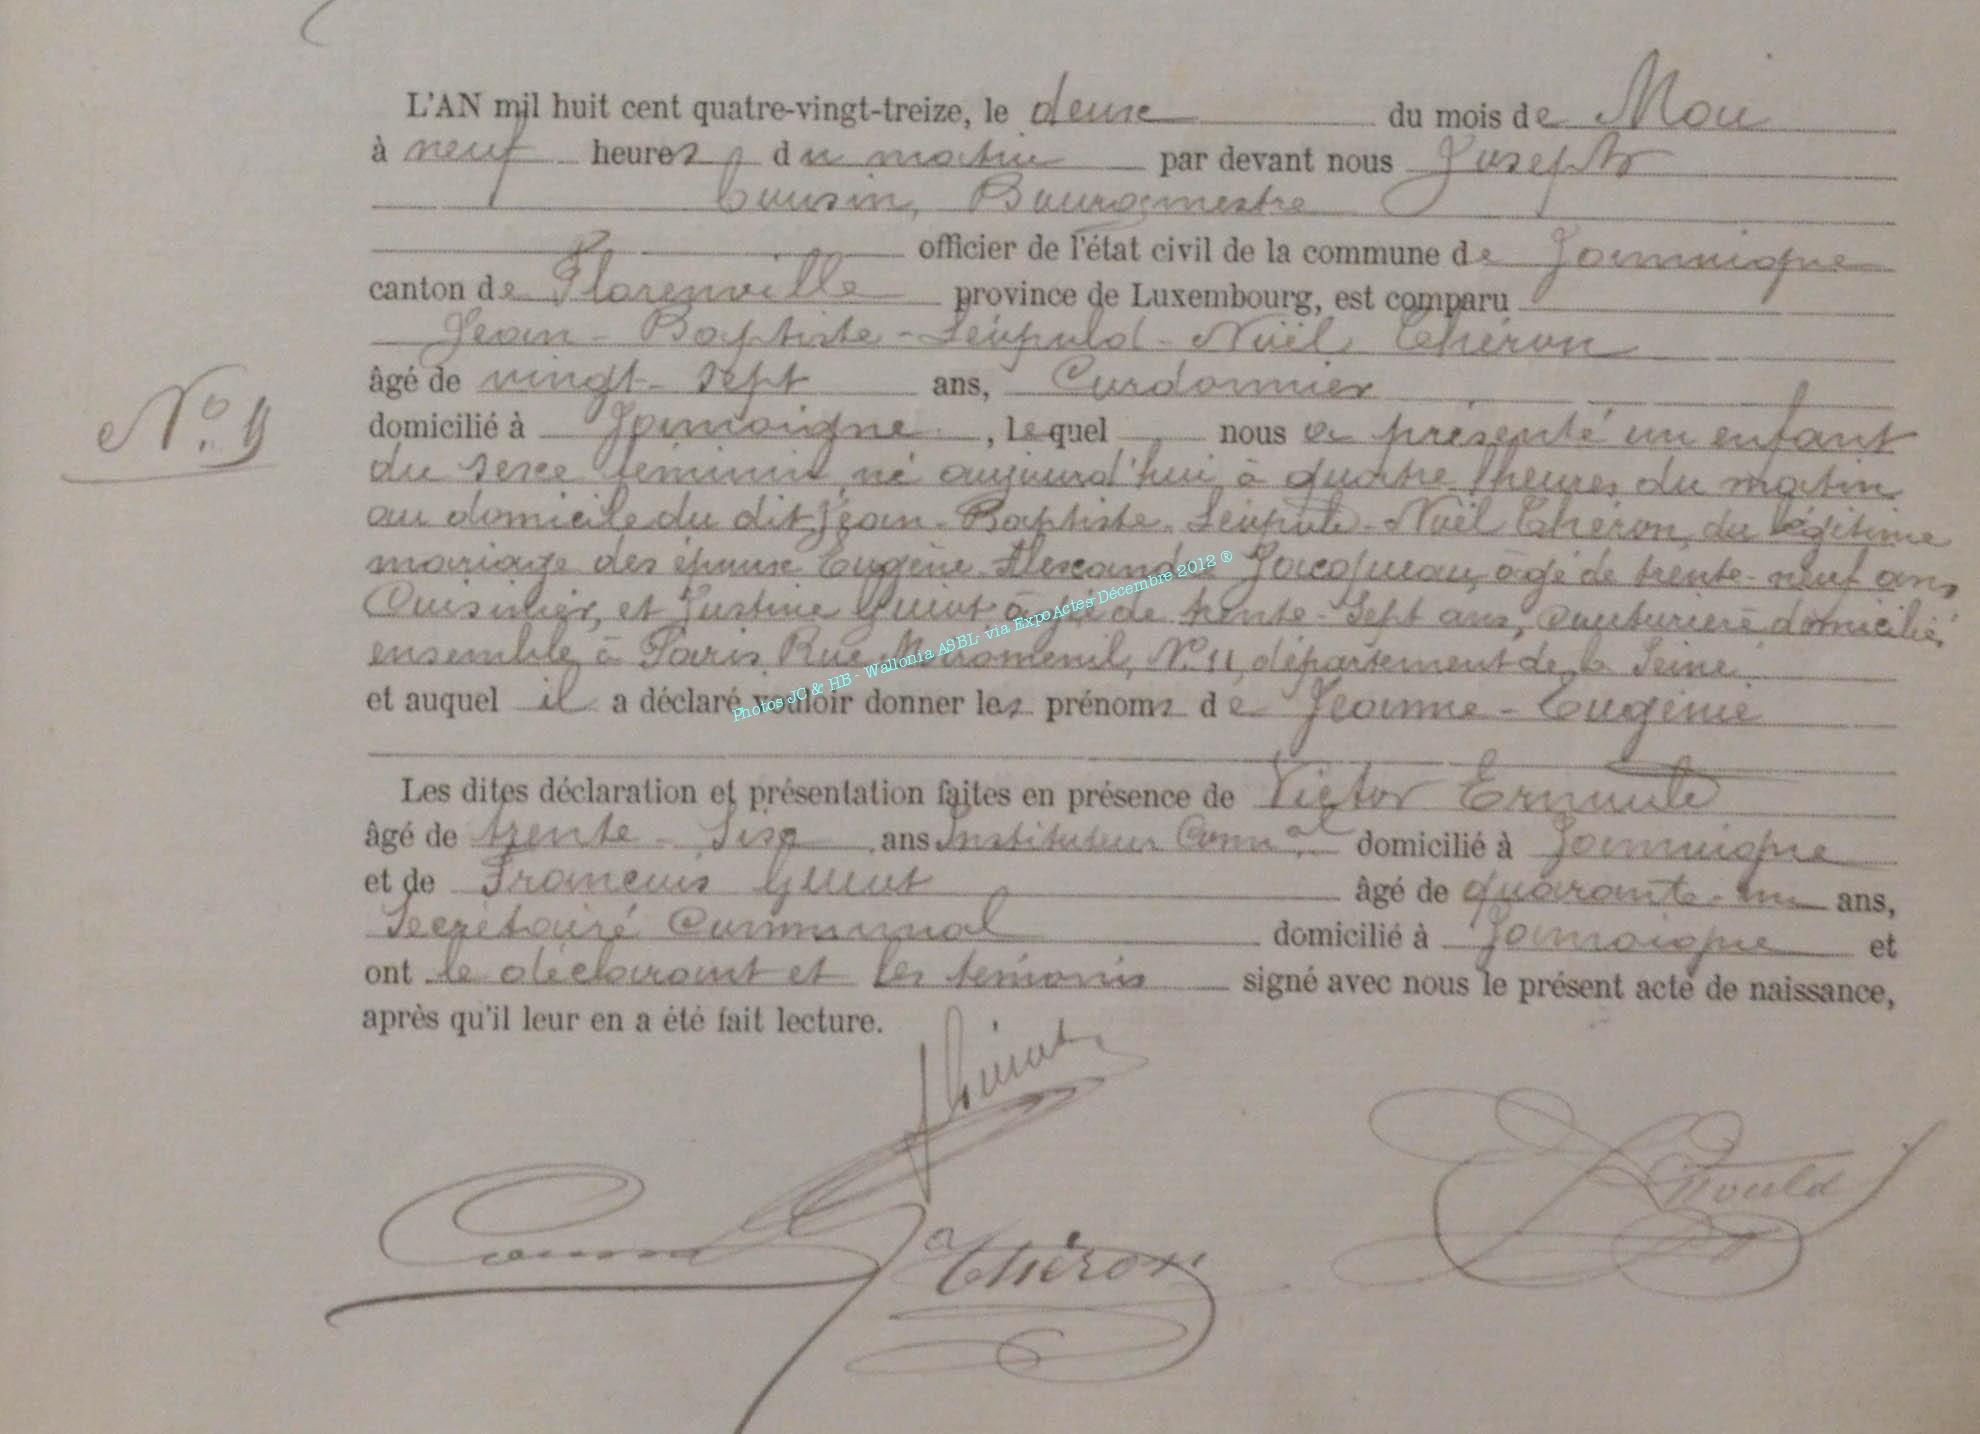 L'AN mil huit cent quatre-vingt-treize, le deux du mois de Mai
à neuf heures du matin par devant nous Joseph
Cousin, Bourgmestre
officier de l'état civil de la commune de Jamoigne
canton de Florenville province de Luxembourg, est comparu
Jean-Baptiste-Léopold-Noël Théron
âgé de vingt-sept ans, Cordonnier
domicilié à Jamoigne, lequel nous a présenté un enfant
N° 9
du sexe féminin né aujourd'hui à quatre heures du matin
au domicile du dit Jean-Baptiste-Léopold-Noël Théron, du légitime
mariage des époux Eugène Alexandre Jacqueau, âgé de trente-neuf ans
Cuisinier, et Justine Guiot âgée de trente-sept ans, Couturière domiciliés
ensemble à Paris Rue Miromenil, N° 11, département de la Seine
et auquel il a déclaré vouloir donner les prénoms de Jeanne-Eugénie
Photos JC & HB - Wallonia ASBL- via ExpoActes-Décembre 2012 ®
Les dites déclaration et présentation faites en présence de Victor Ernould
âgé de trente-six ans Instituteur Comm.al domicilié à Jamoigne
et de François Guiot âgé de quarante-un ans,
Secrétaire Communal domicilié à Jamoigne et
ont le déclarant et les témoins signé avec nous le présent acte de naissance,
après qu'il leur en a été fait lecture.
Guiot
Ernould
Cousin
Théron